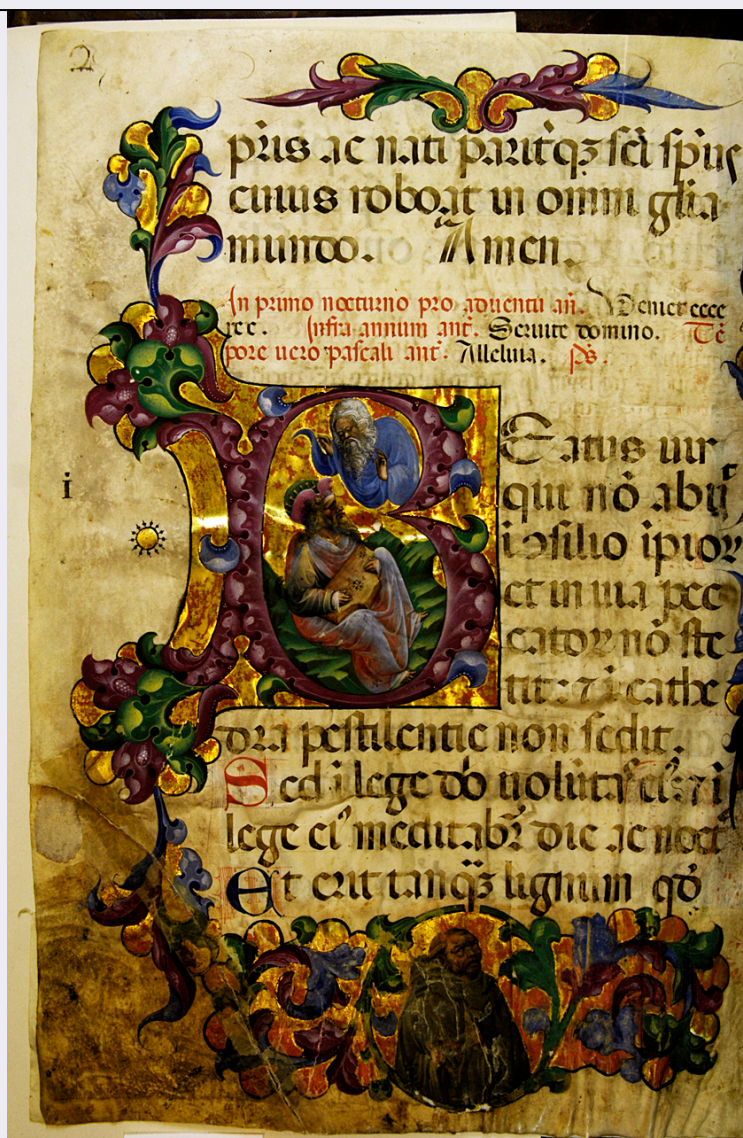 2
pr̄is ac nati parit̄qꝫ sc̄i sp̄us
cuius roborat in omni gl̄ia
mundo. Amen.
In primo nocturno pro aduentu an̄. Veniet ecce
rex. Infra annum ant̄. Seruite domino. Tē
pore uero pascali ant̄. Alleluia. p̄s.
Beatus uir
qui nō abijt
i ↄsilio ipioꝝ
et in uia pec
catoꝝ nō ste
tit: ⁊ i cathe
dra pestilentie non sedit.
Sed i lege dō uolūtas eiꝰ: ⁊ i
lege eiꝰ meditabr̄ die ac noct
Et erit tanqꝫ lignum qđ
i